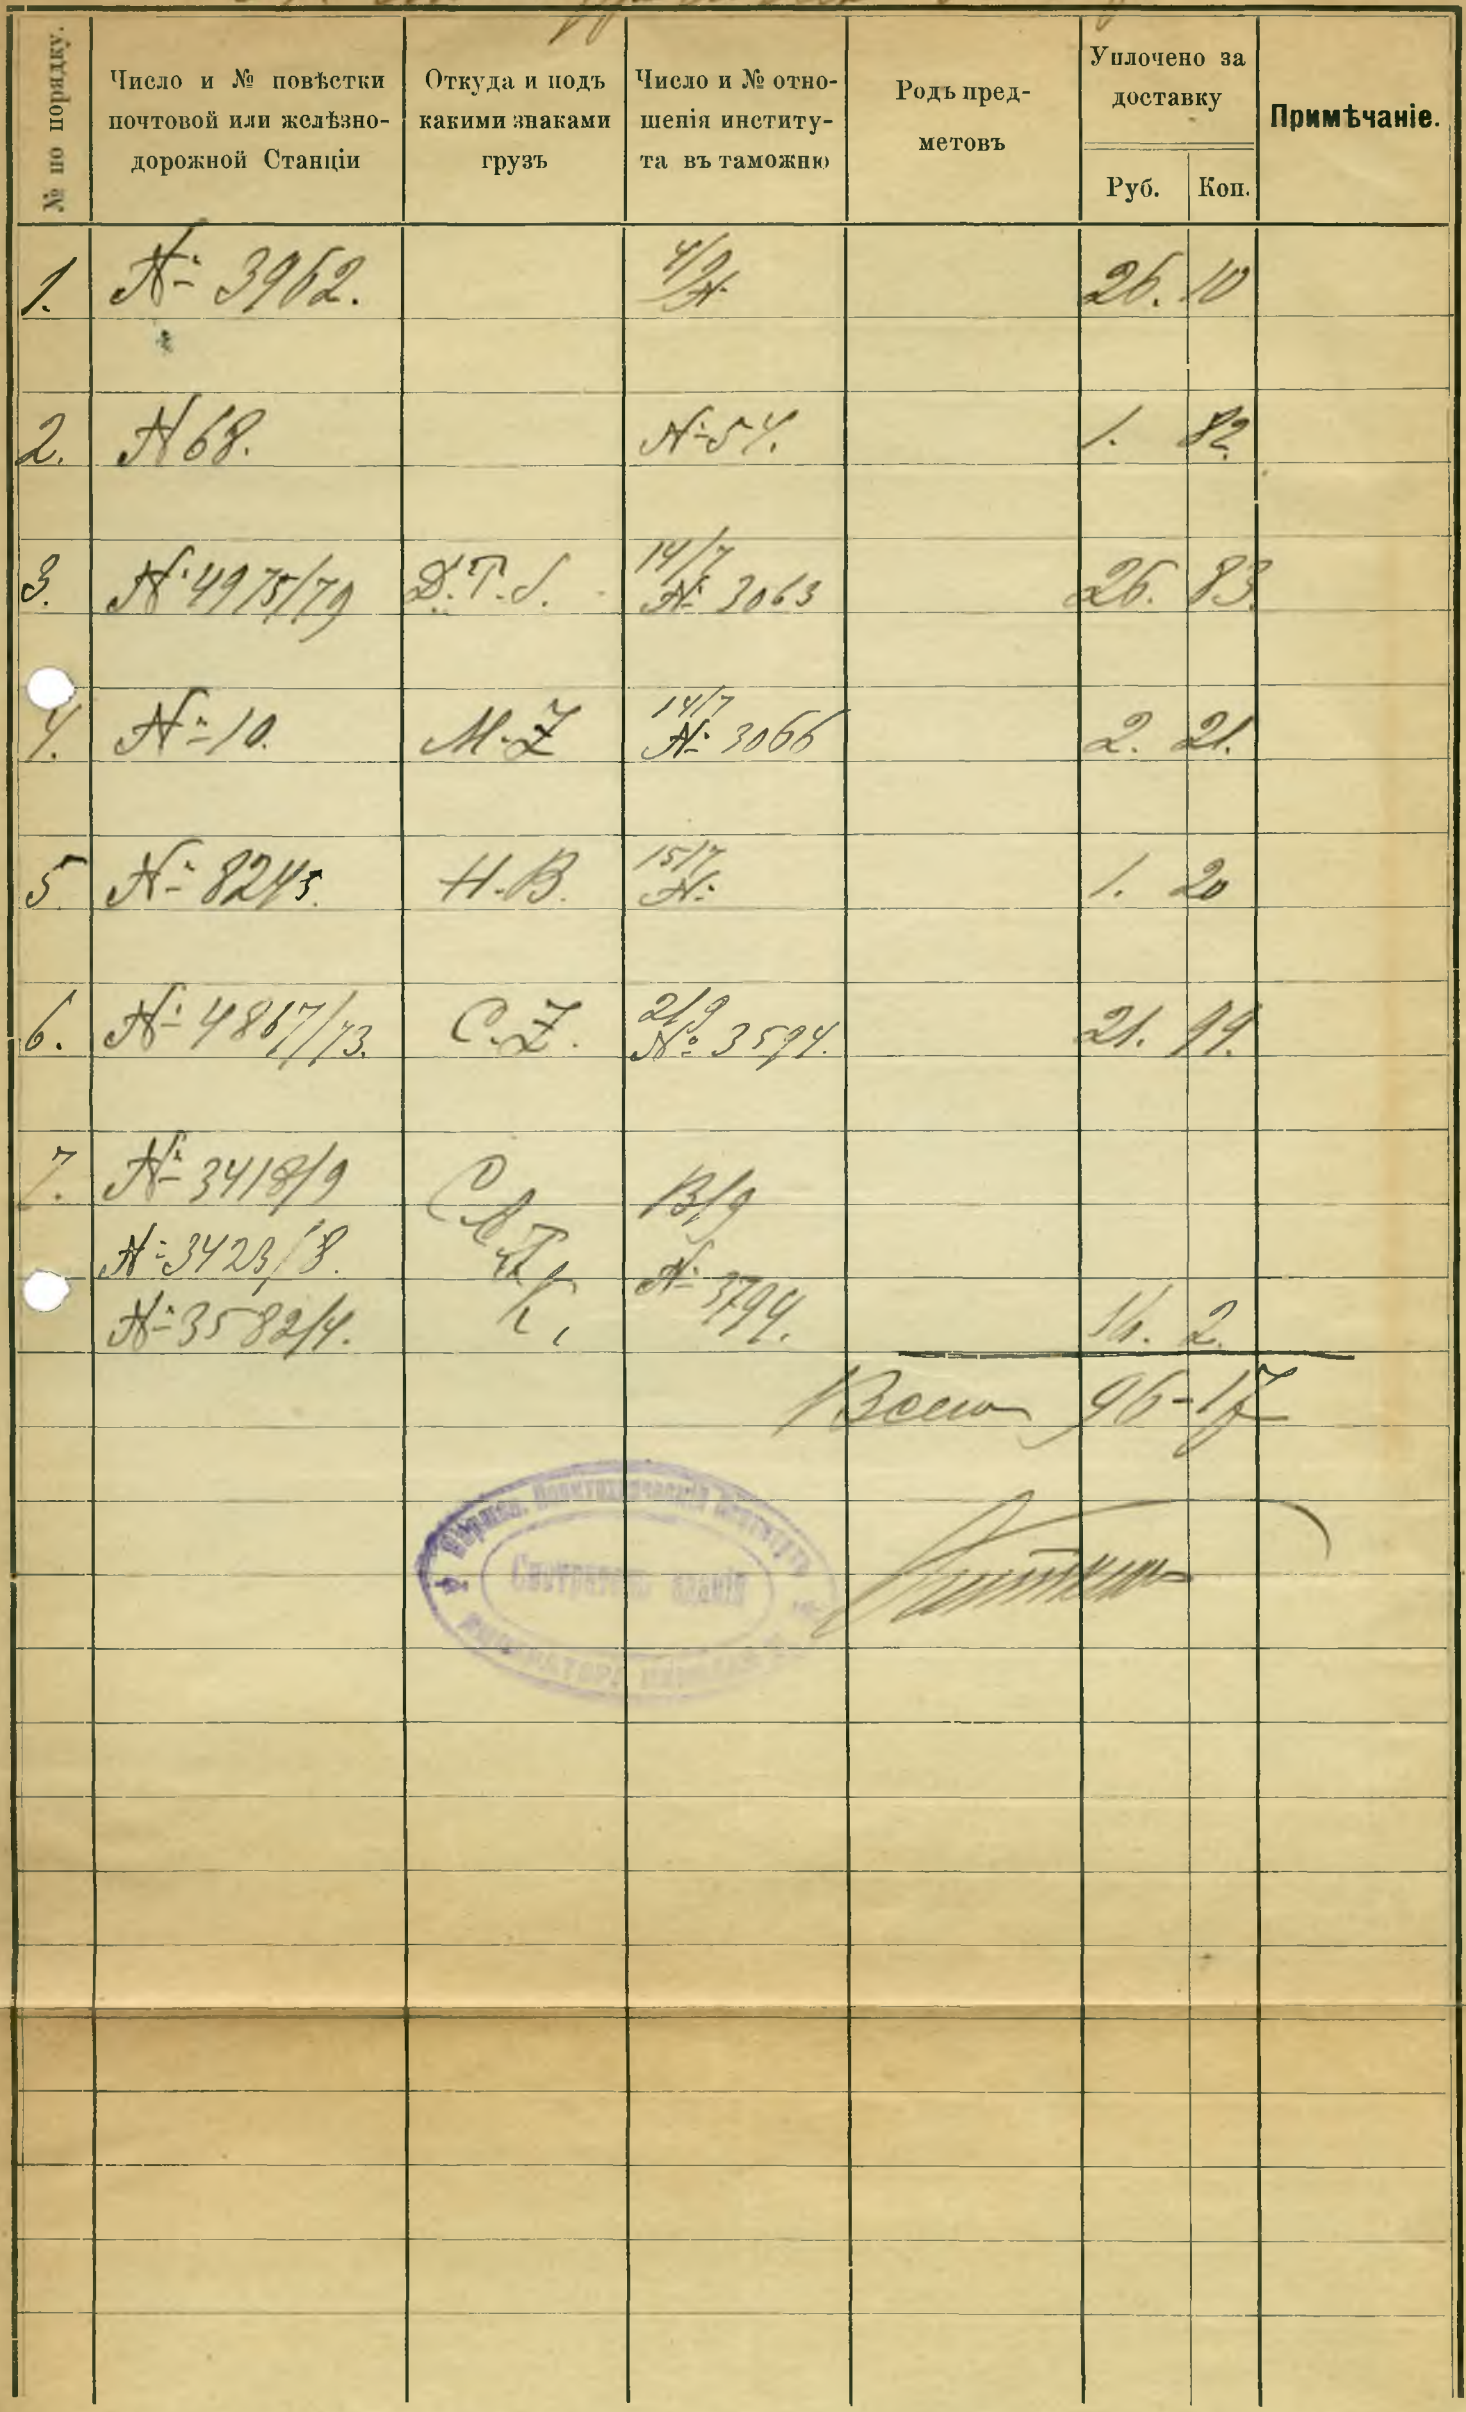 № по порядку.
Число и № повѣстки
почтовой или желѣзно-
дорожной Станціи
Откуда и подъ
какими знаками
грузъ
Число и № отно-
шенія институ-
та въ таможню
Родъ пред-
метовъ
Уплочено за
доставку
Руб. Коп.
Примѣчаніе.
1. № 3962. 4/9 26. 10
№
2. № 68. № 54. 1. 82
3. № 4975/79 D.T.S. 14/7 26. 83.
№ 3063
4. № 10. M.Z 14/7 2. 21.
№ 3066
5 № 8245. H.B. 15/7 1. 20
№
6. № 4867/73. C.Z. 2/9 21. 99.
№ 3594.
7. № 3418/9 13/9
№ 3423/8. №
№ 3582/4. К. 3794. 16. 2.
Всего 96-17
Варшав. Политехническій Институтъ
Смотритель зданій
ИМПЕРАТОРА НИКОЛАЯ II